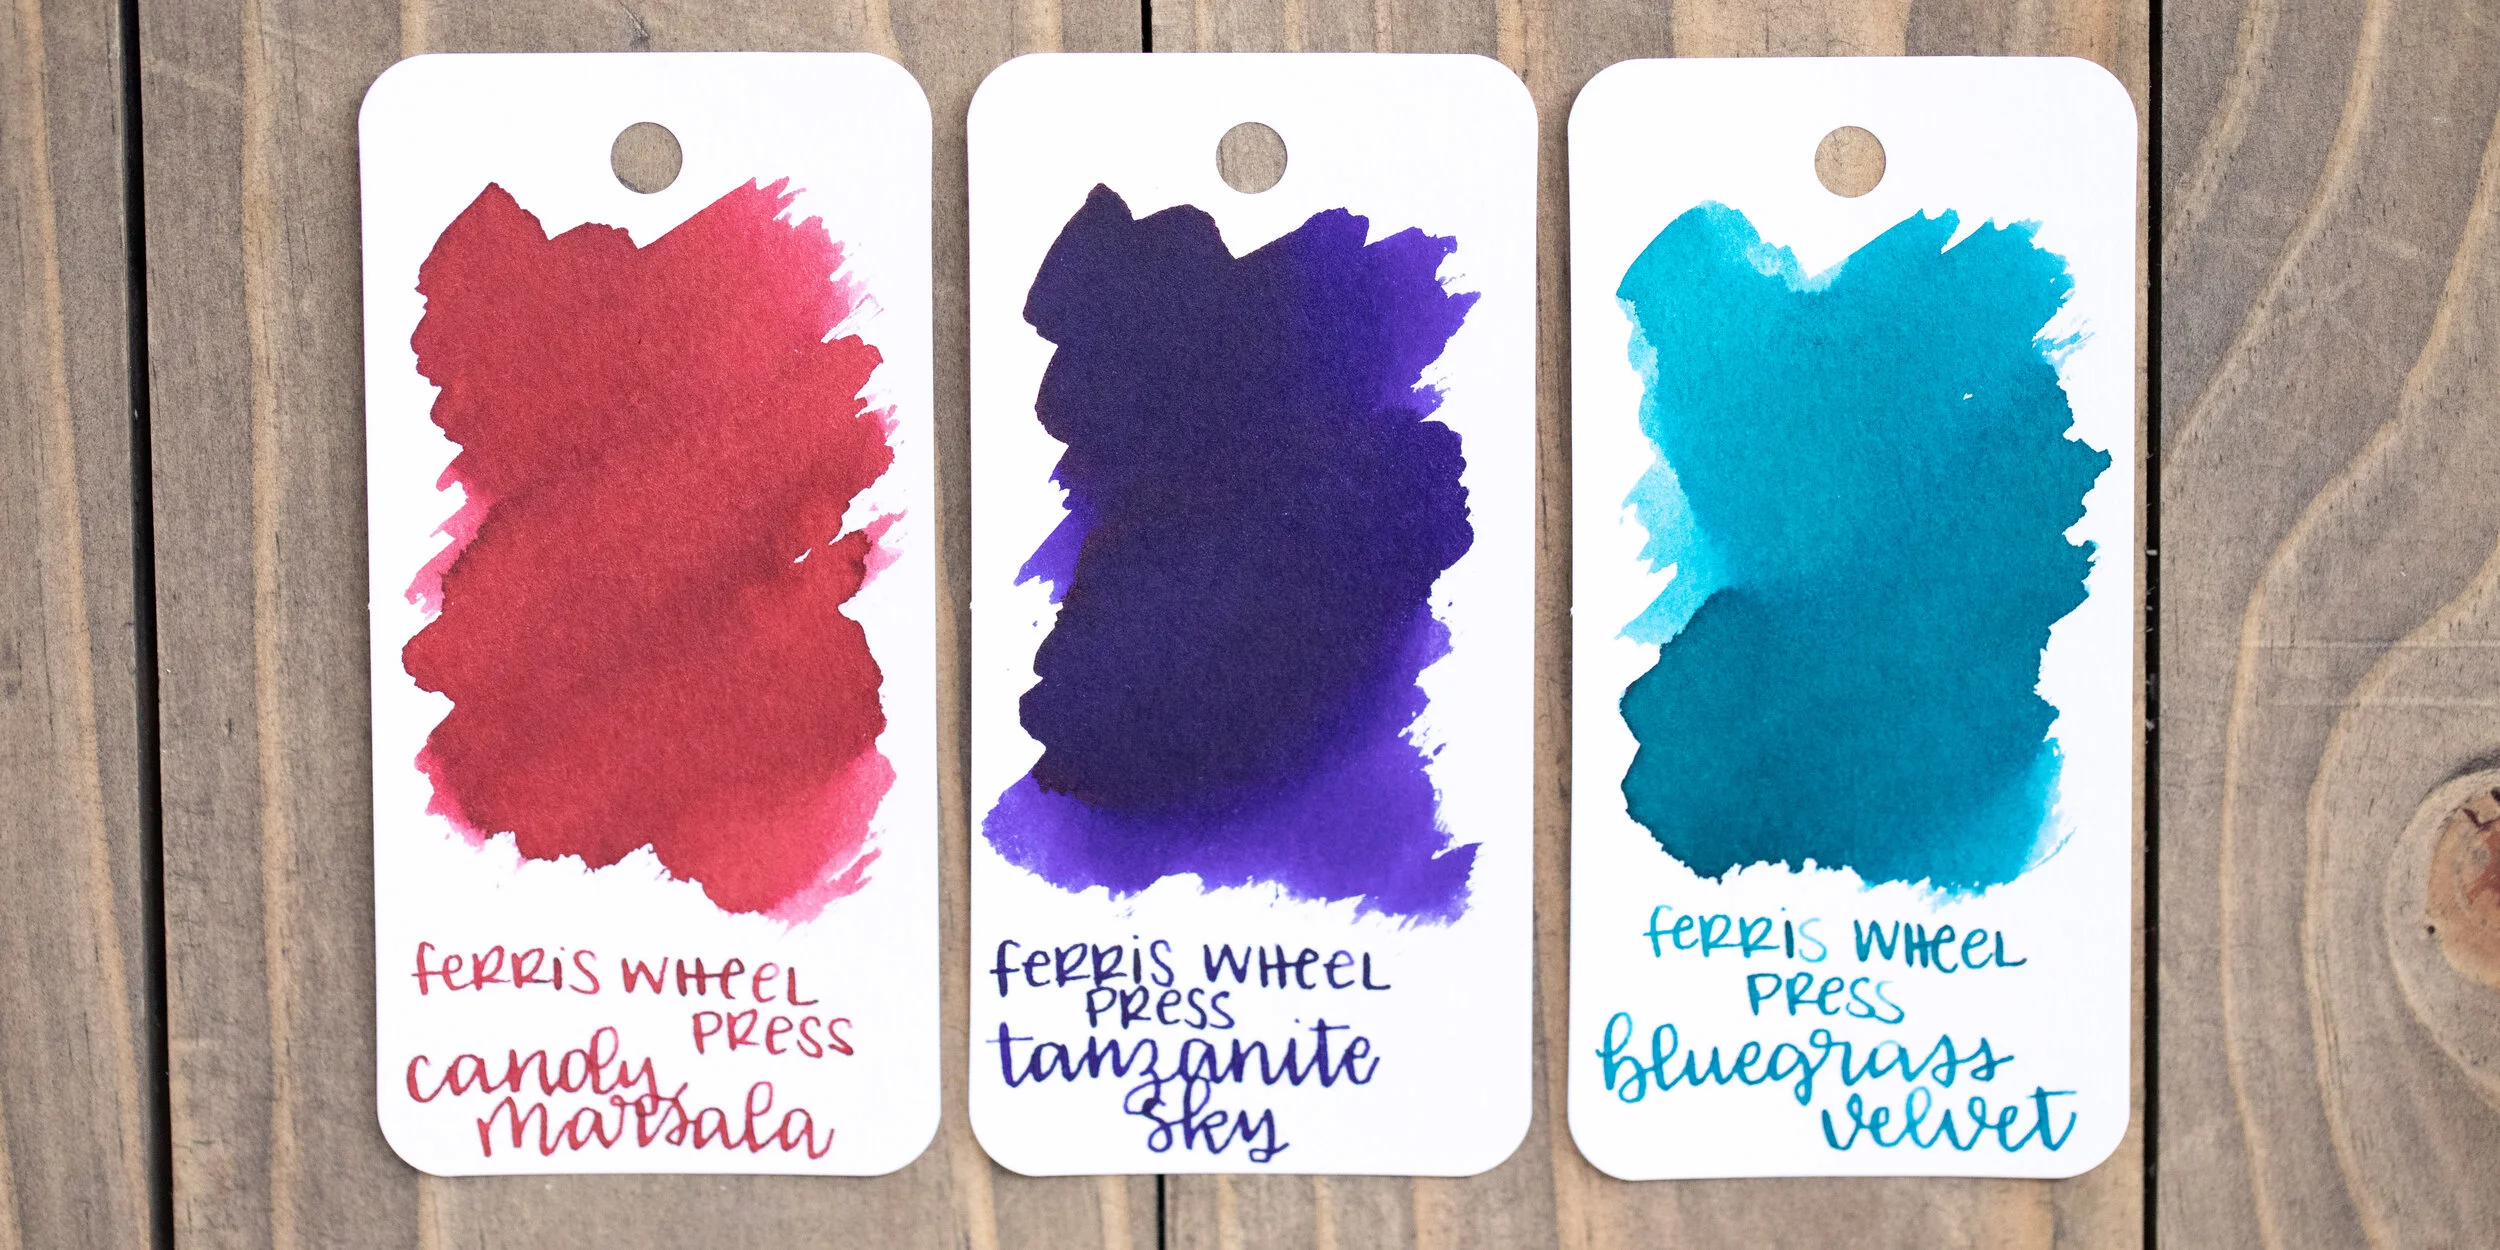 ferris wheel
press
candy
marsala
ferris wheel
press
tanzanite
sky
ferris wheel
press
bluegrass
velvet